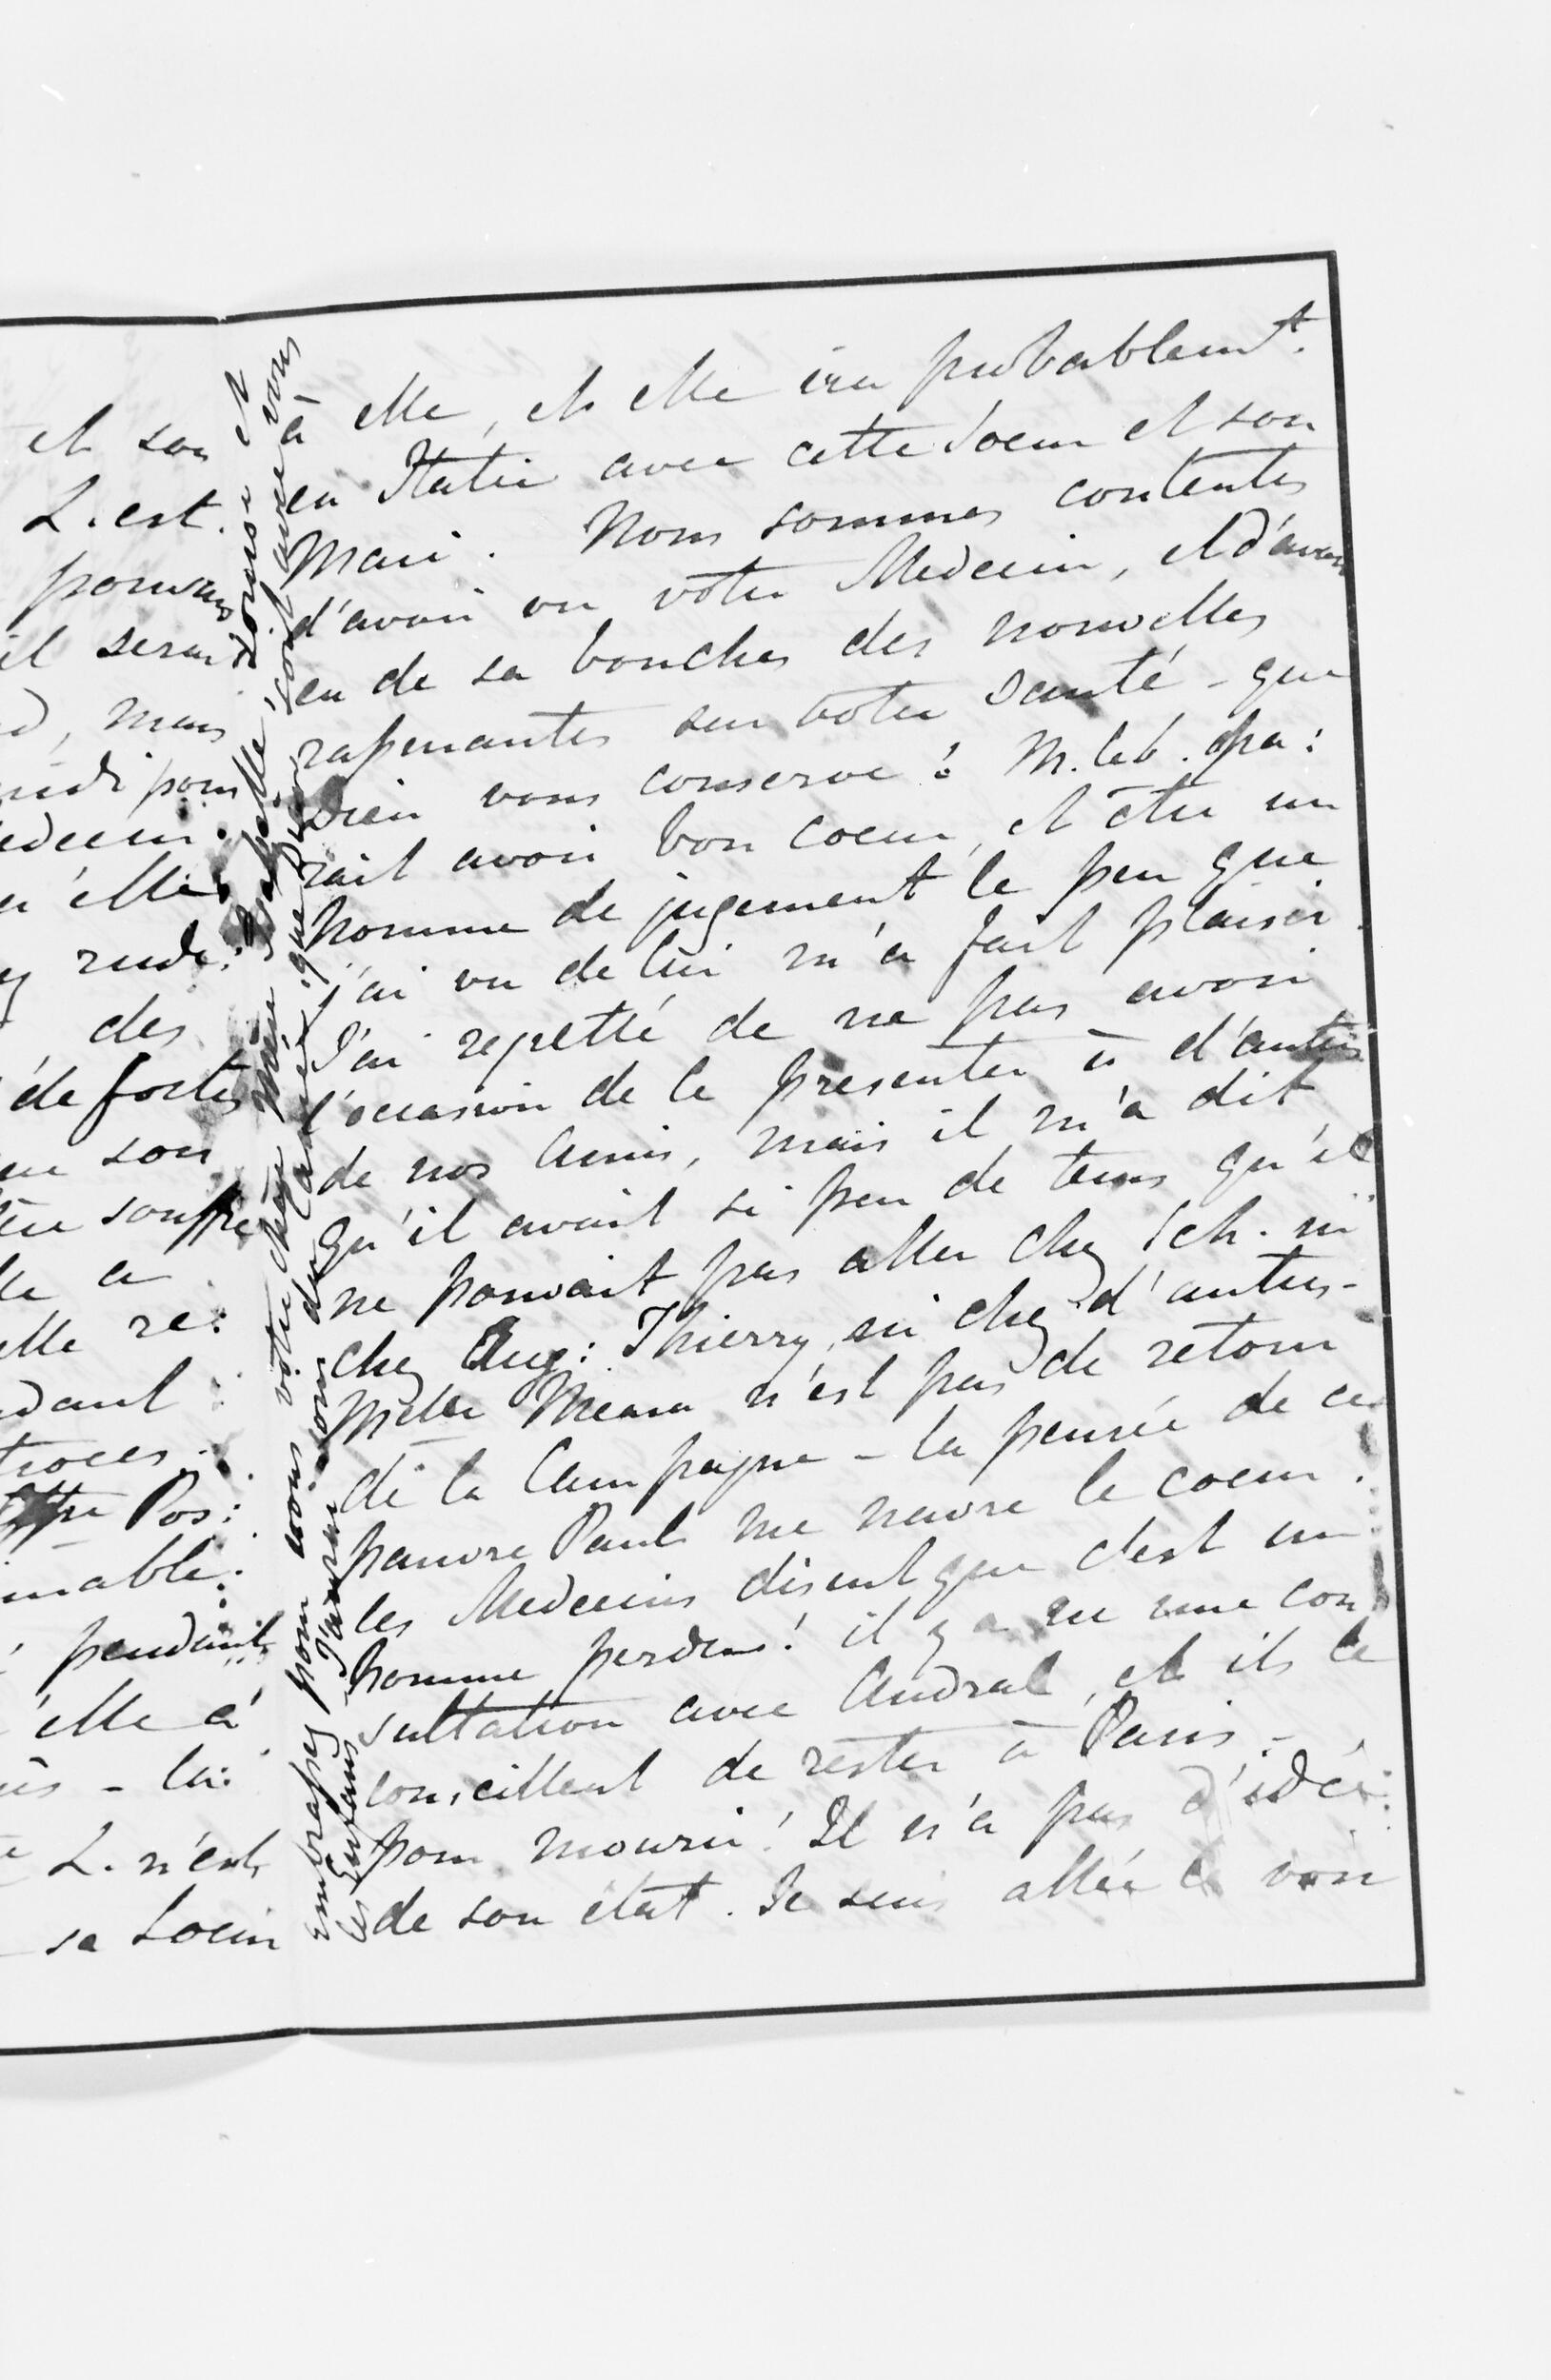 et son
L. est
pouvais
il serait
mais
midi pour
edecin
elle
rude:
des
de fortes
son
souffre
a
elle re:
dant
troces.
Pos:
mable.
pendant
elle à
- la:
L. n'est
sa Soeur
à elle, et elle ira probablemt.
en Italie avec cette soeur et son
Mari. Nous sommes contentes
d'avoir vu votre Medecin, et d'avoir
eu de sa bouche des nouvelles
rassurantes sur votre santé - que
Dieu vous conserve! M. Leb. pa:
rait avoir bon coeur, et être un
homme de jugement le peu que
j'ai vu de lui m'a fait plaisir.
J'ai regretté de ne pas avoir
l'occasion de le presenter à d'autres
de nos Amis, mais il m'a dit
qu'il avait si peu de tems qu'il
ne pouvait pas aller chez Sch. ni
chez Aug: Thierry, ni chez d'autres -
Melle Meara n'est pas de retour
de la Campagne - la pensée de ce
pauvre Paul me navre le coeur.
les Medecins disent que c'est un
homme perdu! il y a eu une con
sultation avec Andral, et ils le
conseillent de rester à Paris -
pour mourir! Il n'a pas d'idée:
de son état. Je suis allée le voir
embrassez pour nous votre chère Mère Louise et
les Enfans. J'aurai soin du que Dieu soit avec vous